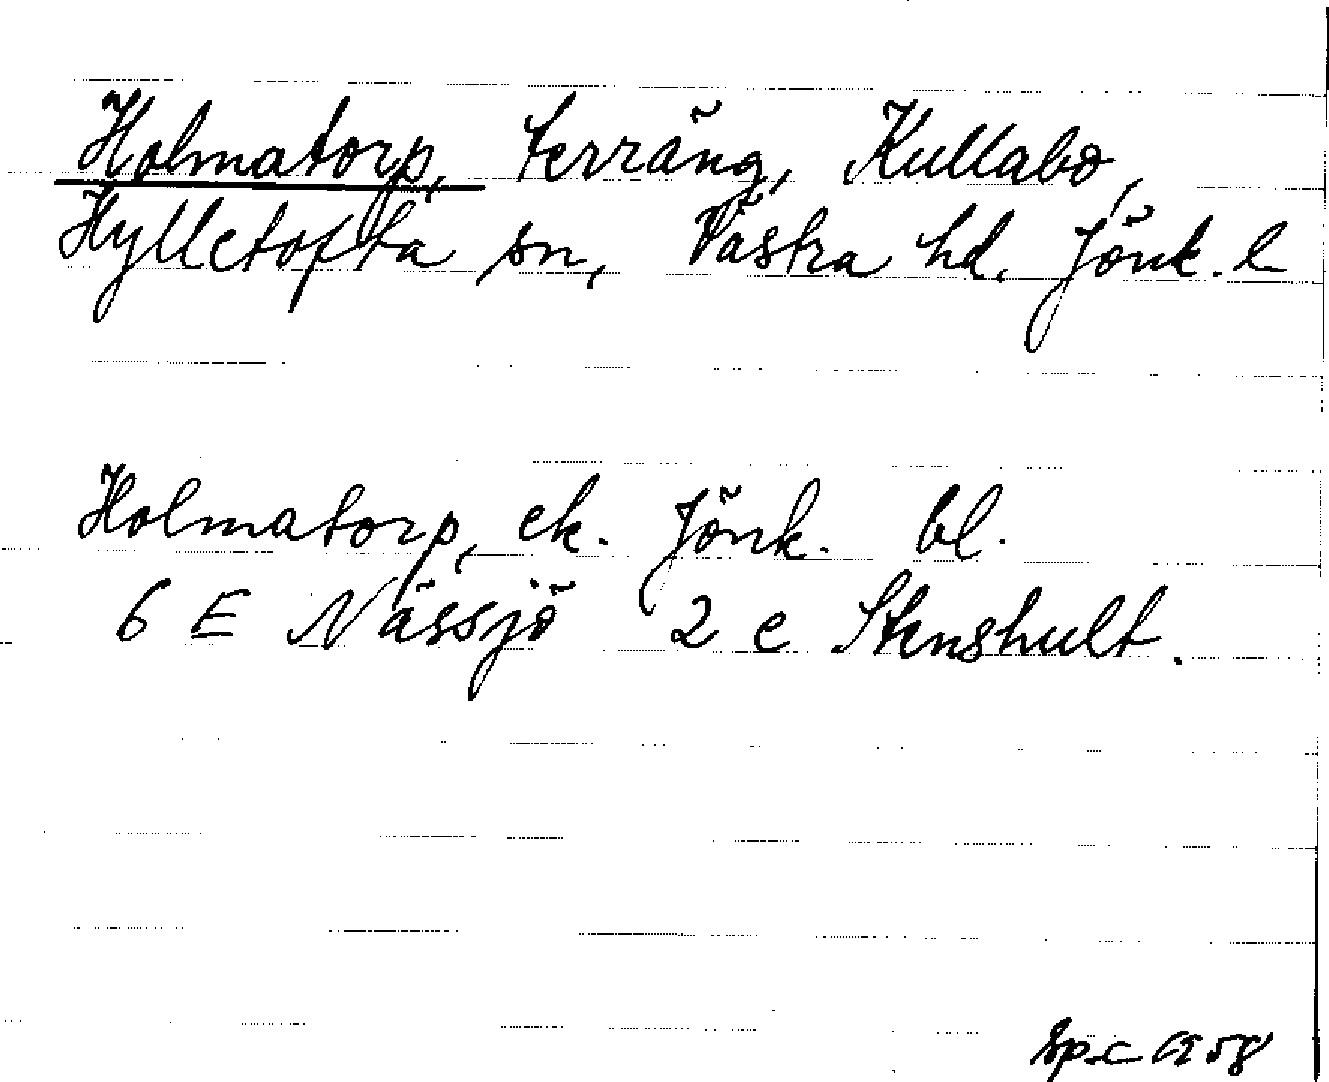 Holmatorp, terräng, Kullabo,
Hylletofta sn, Västra hd. Jönk. l
Holmatorp, ek. Jönk. bl.
6 E Nässjö 2 e Stenshult.
1958